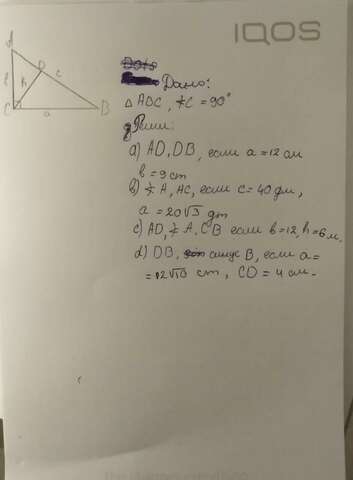 IQOS
A
D
c
b
h
C
a
B
Дано:
△ ABC, ∢C = 90°
a) AD, DB, если a = 12 см
b = 9 cm
b) ∢ A, AC, если c = 40 дм,
a = 20√3 дм
c) AD, ∢ A, CB если b = 12, h = 6 м,
d) DB, синус B, если a =
= 12√13 cm, CD = 4 см.